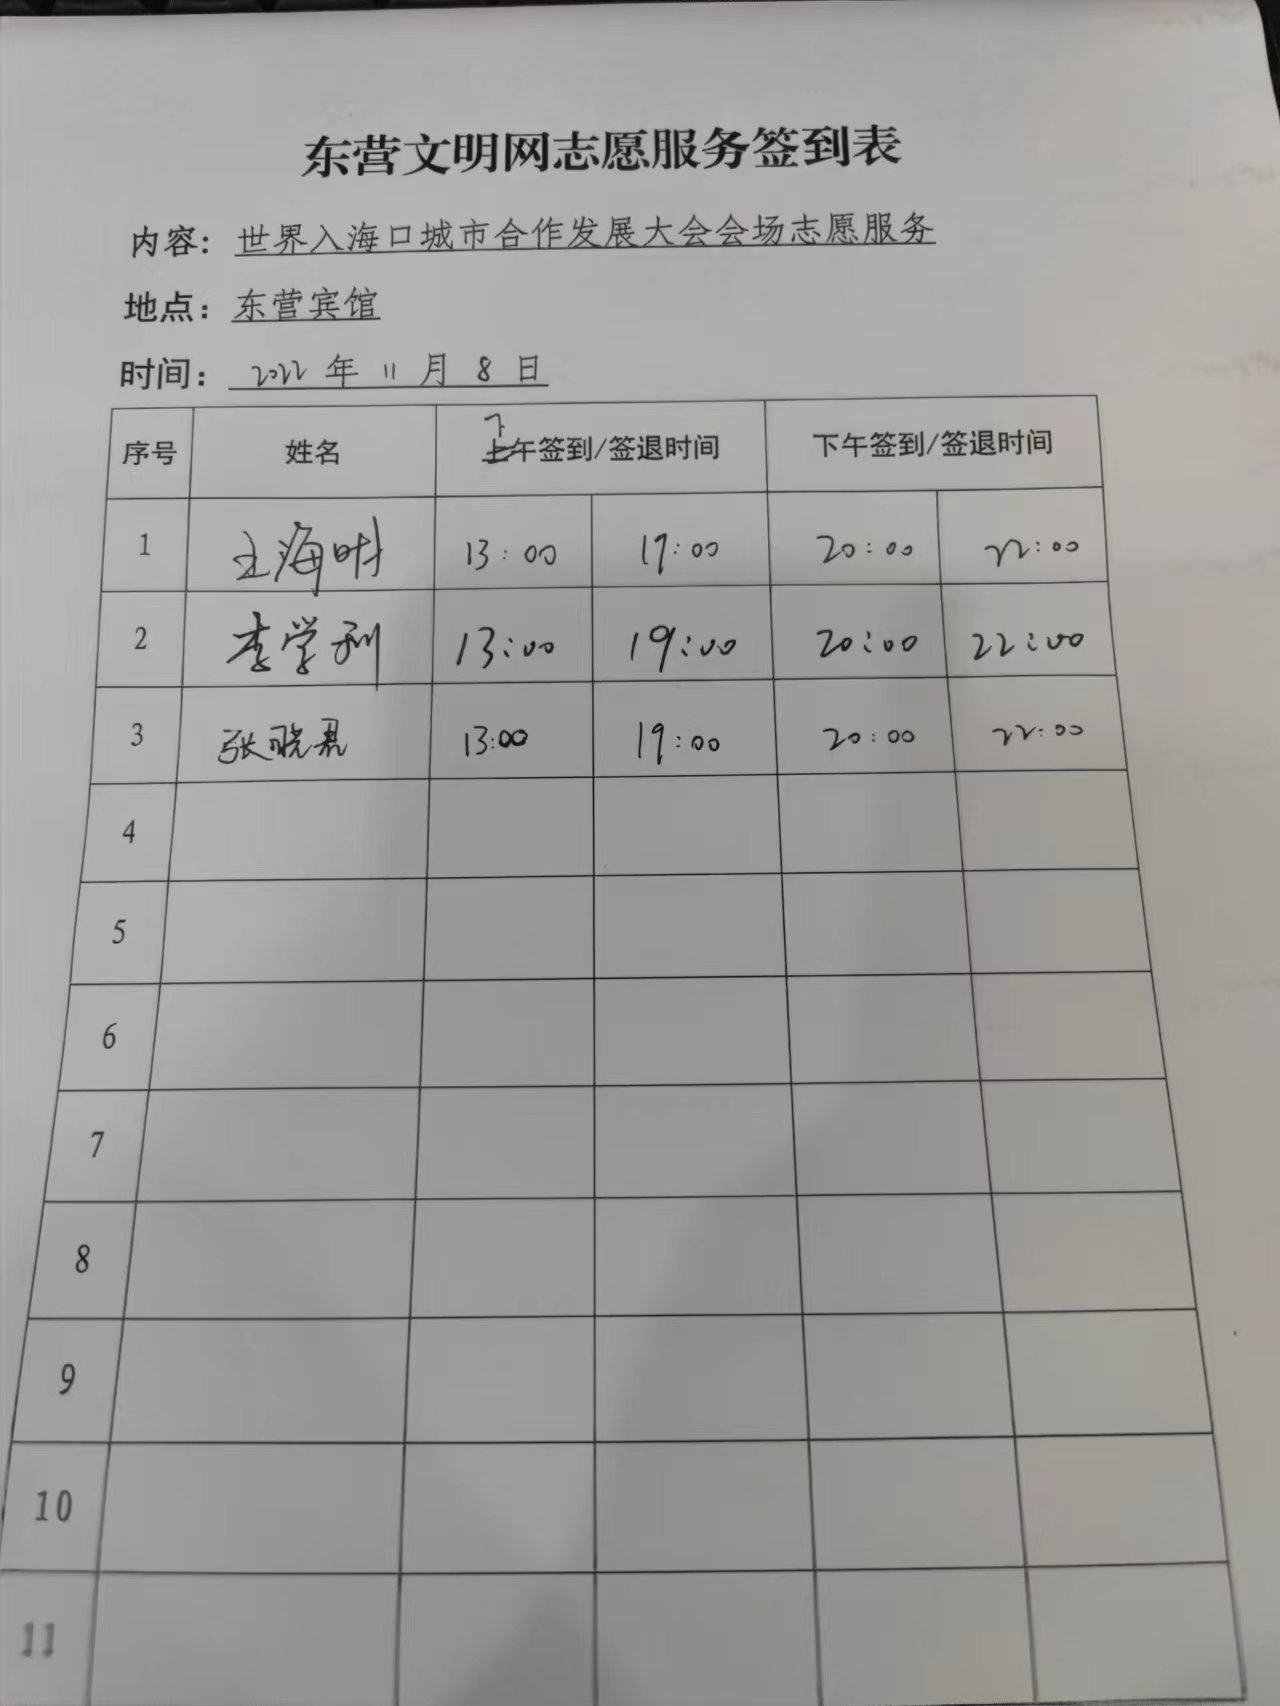 东营文明网志愿服务签到表
内容: 世界入海口城市合作发展大会会场志愿服务
地点: 东营宾馆
时间: 2022 年 11 月 8 日
序号 姓名 下午签到/签退时间 下午签到/签退时间
1 王海明 13:00 19:00 20:00 22:00
2 李学利 13:00 19:00 20:00 22:00
3 张晓亮 13:00 19:00 20:00 22:00
4
5
6
7
8
9
10
11